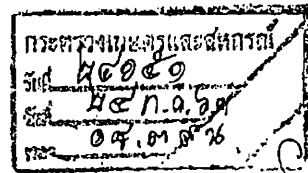 กระทรวงเกษตรและสหกรณ์
รับที่ ๒๔๑๕๑
วันที่ ๒๔ ก.ค. ๖๑
เวลา